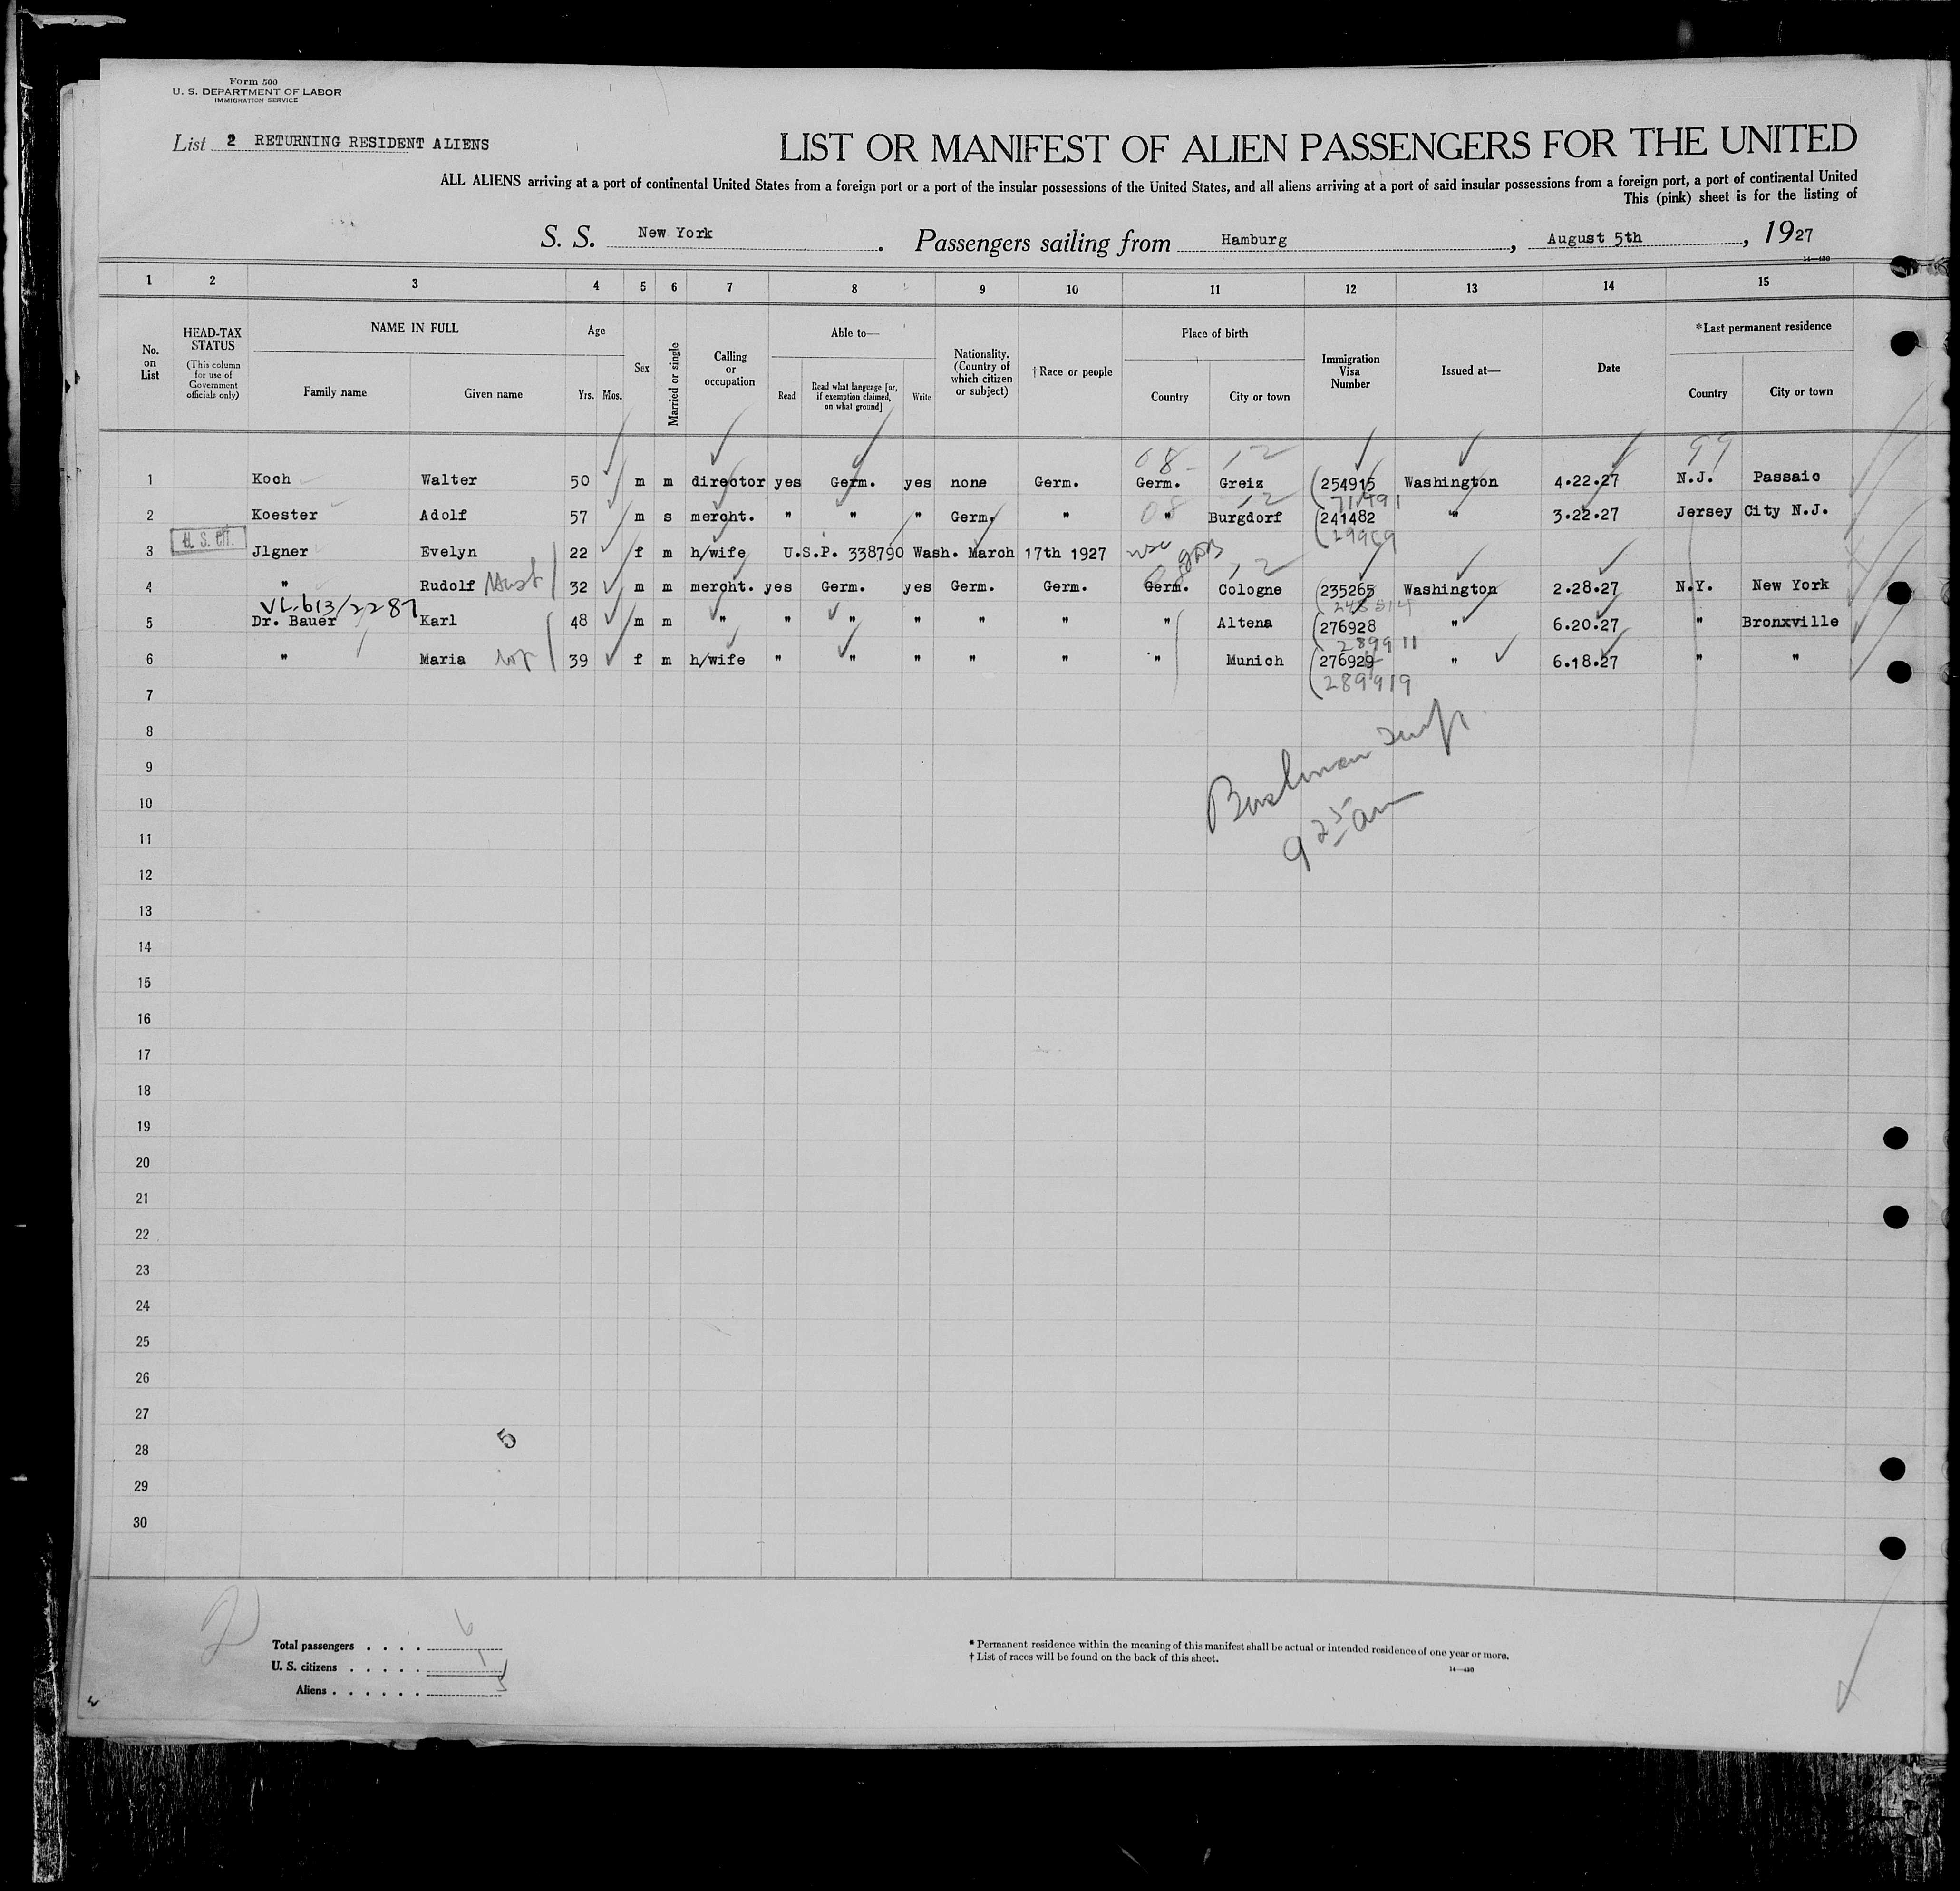 Form 500
U. S. DEPARTMENT OF LABOR
IMMIGRATION SERVICE
List 2 RETURNING RESIDENT ALIENS
LIST OR MANIFEST OF ALIEN PASSENGERS FOR THE UNITED
ALL ALIENS arriving at a port of continental United States from a foreign port or a port of the insular possessions of the United States, and all aliens arriving at a port of said insular possessions from a foreign port, a port of continental United
This (pink) sheet is for the listing of
S. S. New York. Passengers sailing from Hamburg, August 5th, 1927
14—430
1 2 3 4 5 6 7 8 9 10 11 12 13 14 15
No. on List
HEAD-TAX STATUS
(This column for use of Government officials only)
NAME IN FULL
Family name Given name
Age
Yrs. Mos.
Sex
Married or single
Calling or occupation
Able to—
Read
Read what language [or, if exemption claimed, on what ground]
Write
Nationality. (Country of which citizen or subject)
†Race or people
Place of birth
Country City or town
Immigration Visa Number
Issued at—
Date
*Last permanent residence
Country City or town
08 12 99
1 Koch Walter 50 m m director yes Germ. yes none Germ. Germ. Greiz (254915 Washington 4.22.27 N.J. Passaic
08 12 711491
2 Koester Adolf 57 m s mercht. " " " Germ. " " Burgdorf (241482 " 3.22.27 Jersey City N.J.
29969
3 U. S. Cit. Jlgner Evelyn 22 f m h/wife U.S.P. 338790 Wash. March 17th 1927
12
4 " Rudolf Husb 32 m m mercht. yes Germ. yes Germ. Germ. Germ. Cologne (235265 Washington 2.28.27 N.Y. New York
VL.613/2287
5 Dr. Bauer Karl 48 m m " " " " " " " Altena (276928 " 6.20.27 " Bronxville
289911
6 " Maria 39 f m h/wife " " " " " " Munich (276929 " 6.18.27 " "
(289919
7
8
9
10
11
9 25 am
12
13
14
15
16
17
18
19
20
21
22
23
24
25
26
27
5
28
29
30
2
Total passengers . . . . 6
U. S. citizens . . . . . 1
Aliens . . . . . . 5
* Permanent residence within the meaning of this manifest shall be actual or intended residence of one year or more.
† List of races will be found on the back of this sheet.
14—430